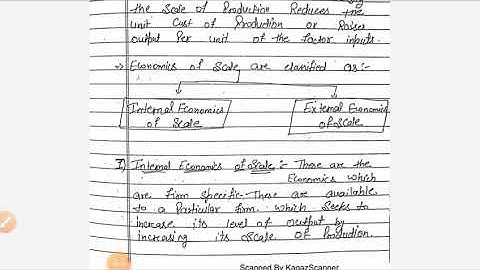 the Scale of Production Reduces the
unit Cost of Production or Raises
output Per unit of the factor inputs.
→ Economics of Scale are classified as:-
Internal Economics
of Scale
External Economics
of Scale
I) Internal Economics of Scale :- These are the
Economics which
are firm Specific. These are available
to a Particular firm. which Seeks to
increase its level of output by
increasing its Scale of Production.
Scanned By KagazScanner